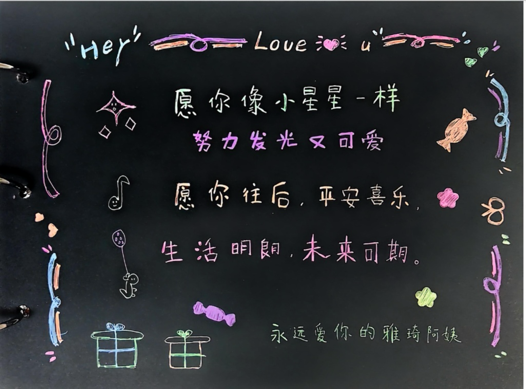 "Hey" Love u"
愿你像小星星一样
努力发光又可爱
愿你往后,平安喜乐,
生活明朗,未来可期。
永远爱你的雅琦阿姨